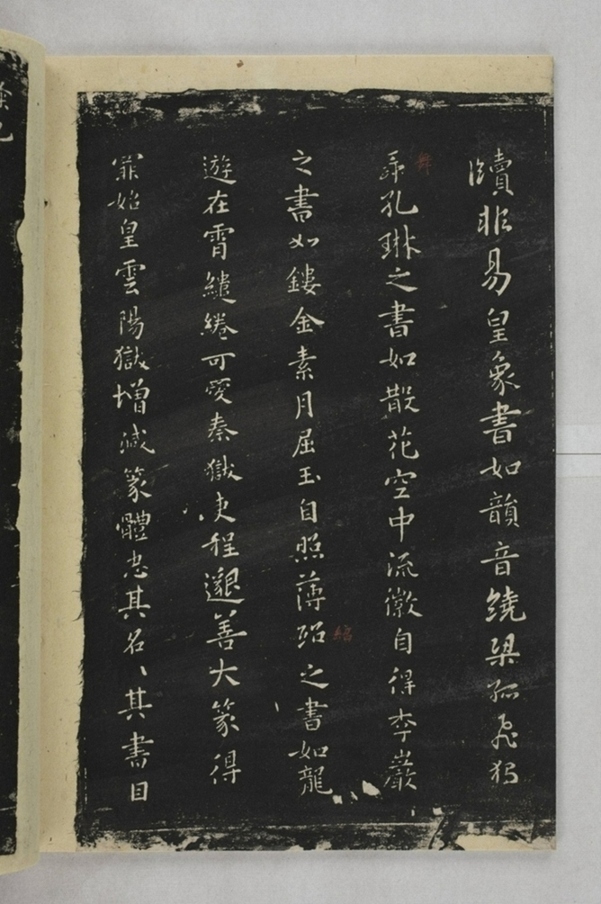 牘非易皇象書如韻音繞梁孤飛獨
舞孔琳之書如散花空中流徽自得李巖
之書如鏤金素月屈玉自照薄紹之書如龍
遊在霄繾綣可愛秦獄吏程邈善大篆得
罪始皇雲陽獄增減篆體去其名〻其書曰